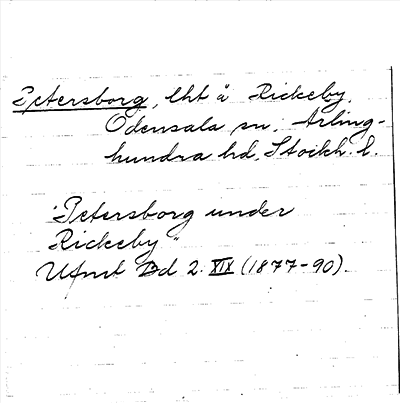 Petersborg, lht å Rickeby,
Odensala sn, Ärling-
hundra hd, Stockh. l.
"Petersborg under
Rickeby"
Ufmt Bd 2. XIX (1877-90).